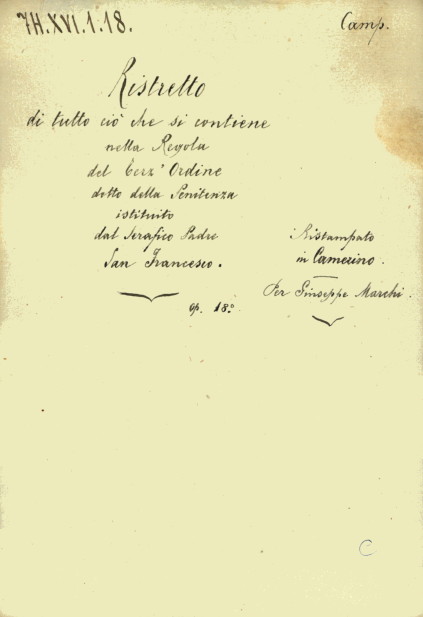 7H.XVI.1.18.
Camp.
Ristretto
di tutto ciò che si contiene
nella Regola
del Terz' Ordine
detto della Penitenza
istituito
dal Serafico Padre
San Francesco.
op. 18º
Ristampato
in Camerino.
Per Giuseppe Marchi.
C